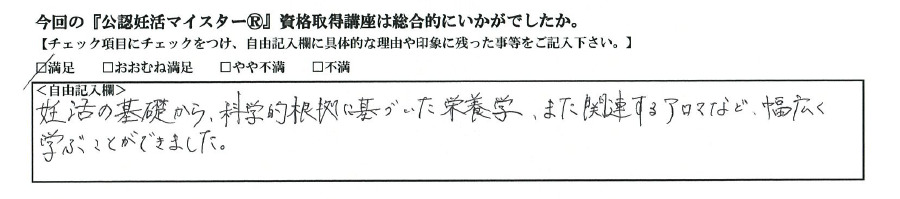 今回の『公認妊活マイスター®』資格取得講座は総合的にいかがでしたか。
【チェック項目にチェックをつけ、自由記入欄に具体的な理由や印象に残った事等をご記入下さい。】
☑満足 □おおむね満足 □やや不満 □不満
<自由記入欄>
妊活の基礎から、科学的根拠に基づいた栄養学、また関連するアロマなど、幅広く
学ぶことができました。